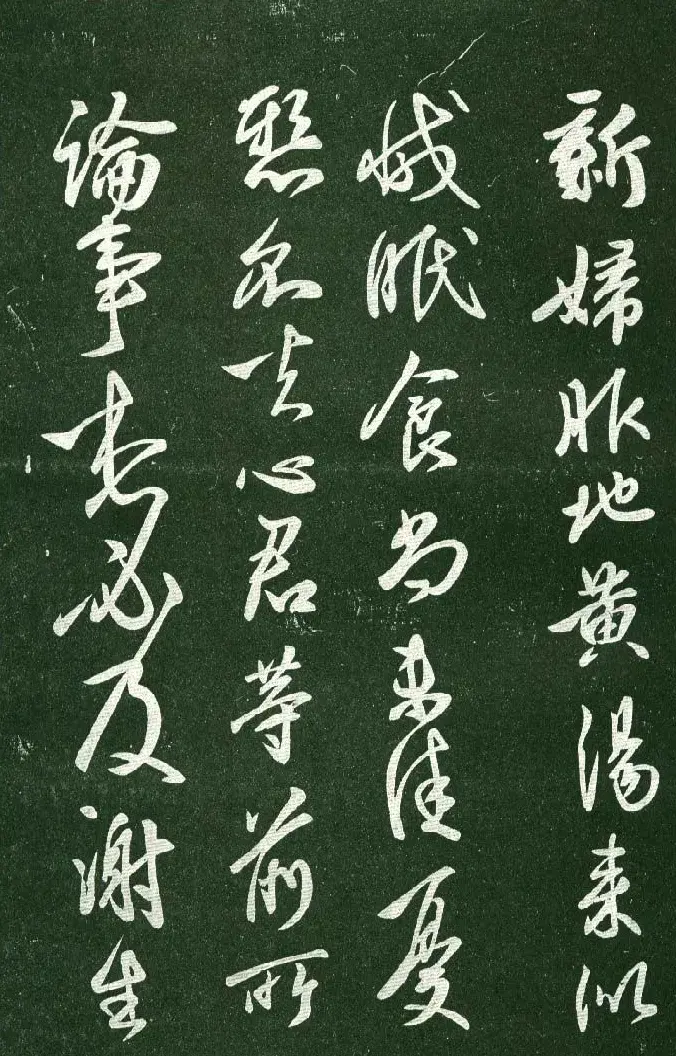 新婦昨地黃湯來似
減眠食尚未佳憂
懸不去心君等前所
論事想必及謝生